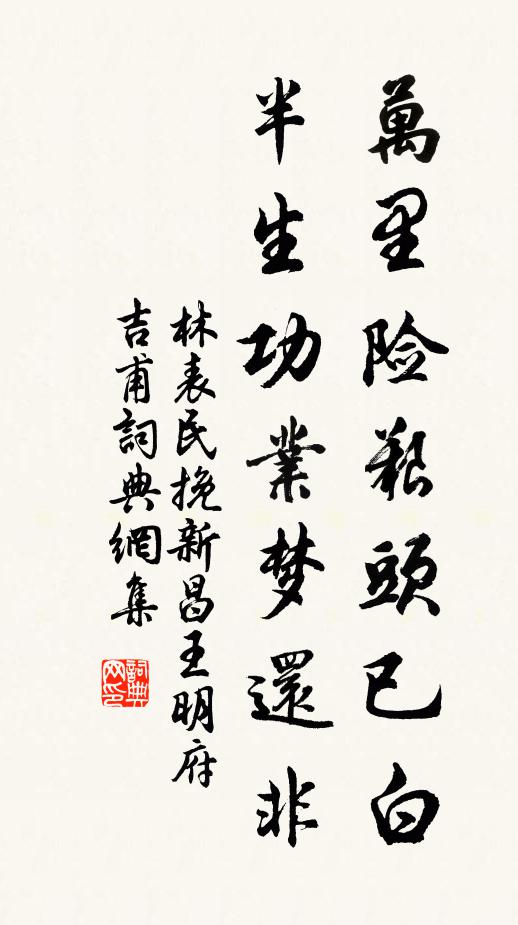 萬里险艱頭已白
半生功業梦還非
林表民挽新昌王明府
吉甫詞典網集
詞典网印